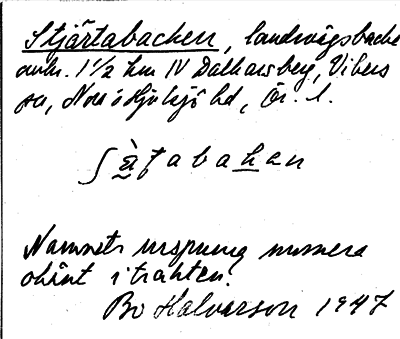 Stjärtabacken, landsvägsbacke
omkr. 1 1/2 km N Dalkarlsberg, Vikers
sn, Nora o Hjulsjö hd, Ör. l.
ʃàṭabahan
Namnets ursprung numera
okänt i trakten.
Bo Halvarson 1947